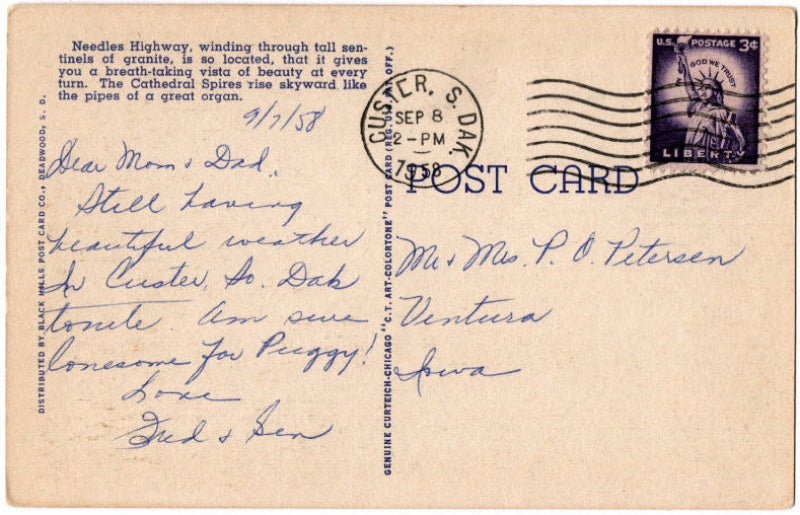 Needles Highway, winding through tall sen-
tinels of granite, is so located, that it gives
you a breath-taking vista of beauty at every
turn. The Cathedral Spires rise skyward like
the pipes of a great organ.
9/7/58
Dear Mom & Dad,
Still having
beautiful weather
In Custer, So. Dak
tonite. Am sure
lonesome for Puggy!
Love
Fred & Gen
DISTRIBUTED BY BLACK HILLS POST CARD CO., DEADWOOD, S. D.
GENUINE CURTEICH-CHICAGO "C. T. ART-COLORTONE" POST CARD (REG. U.S. PAT. OFF.)
CUSTER, S. DAK.
SEP 8
2-PM
1958
U.S. POSTAGE 3¢
IN GOD WE TRUST
LIBERTY
POST CARD
Mr & Mrs. P. O. Petersen
Ventura
Iowa